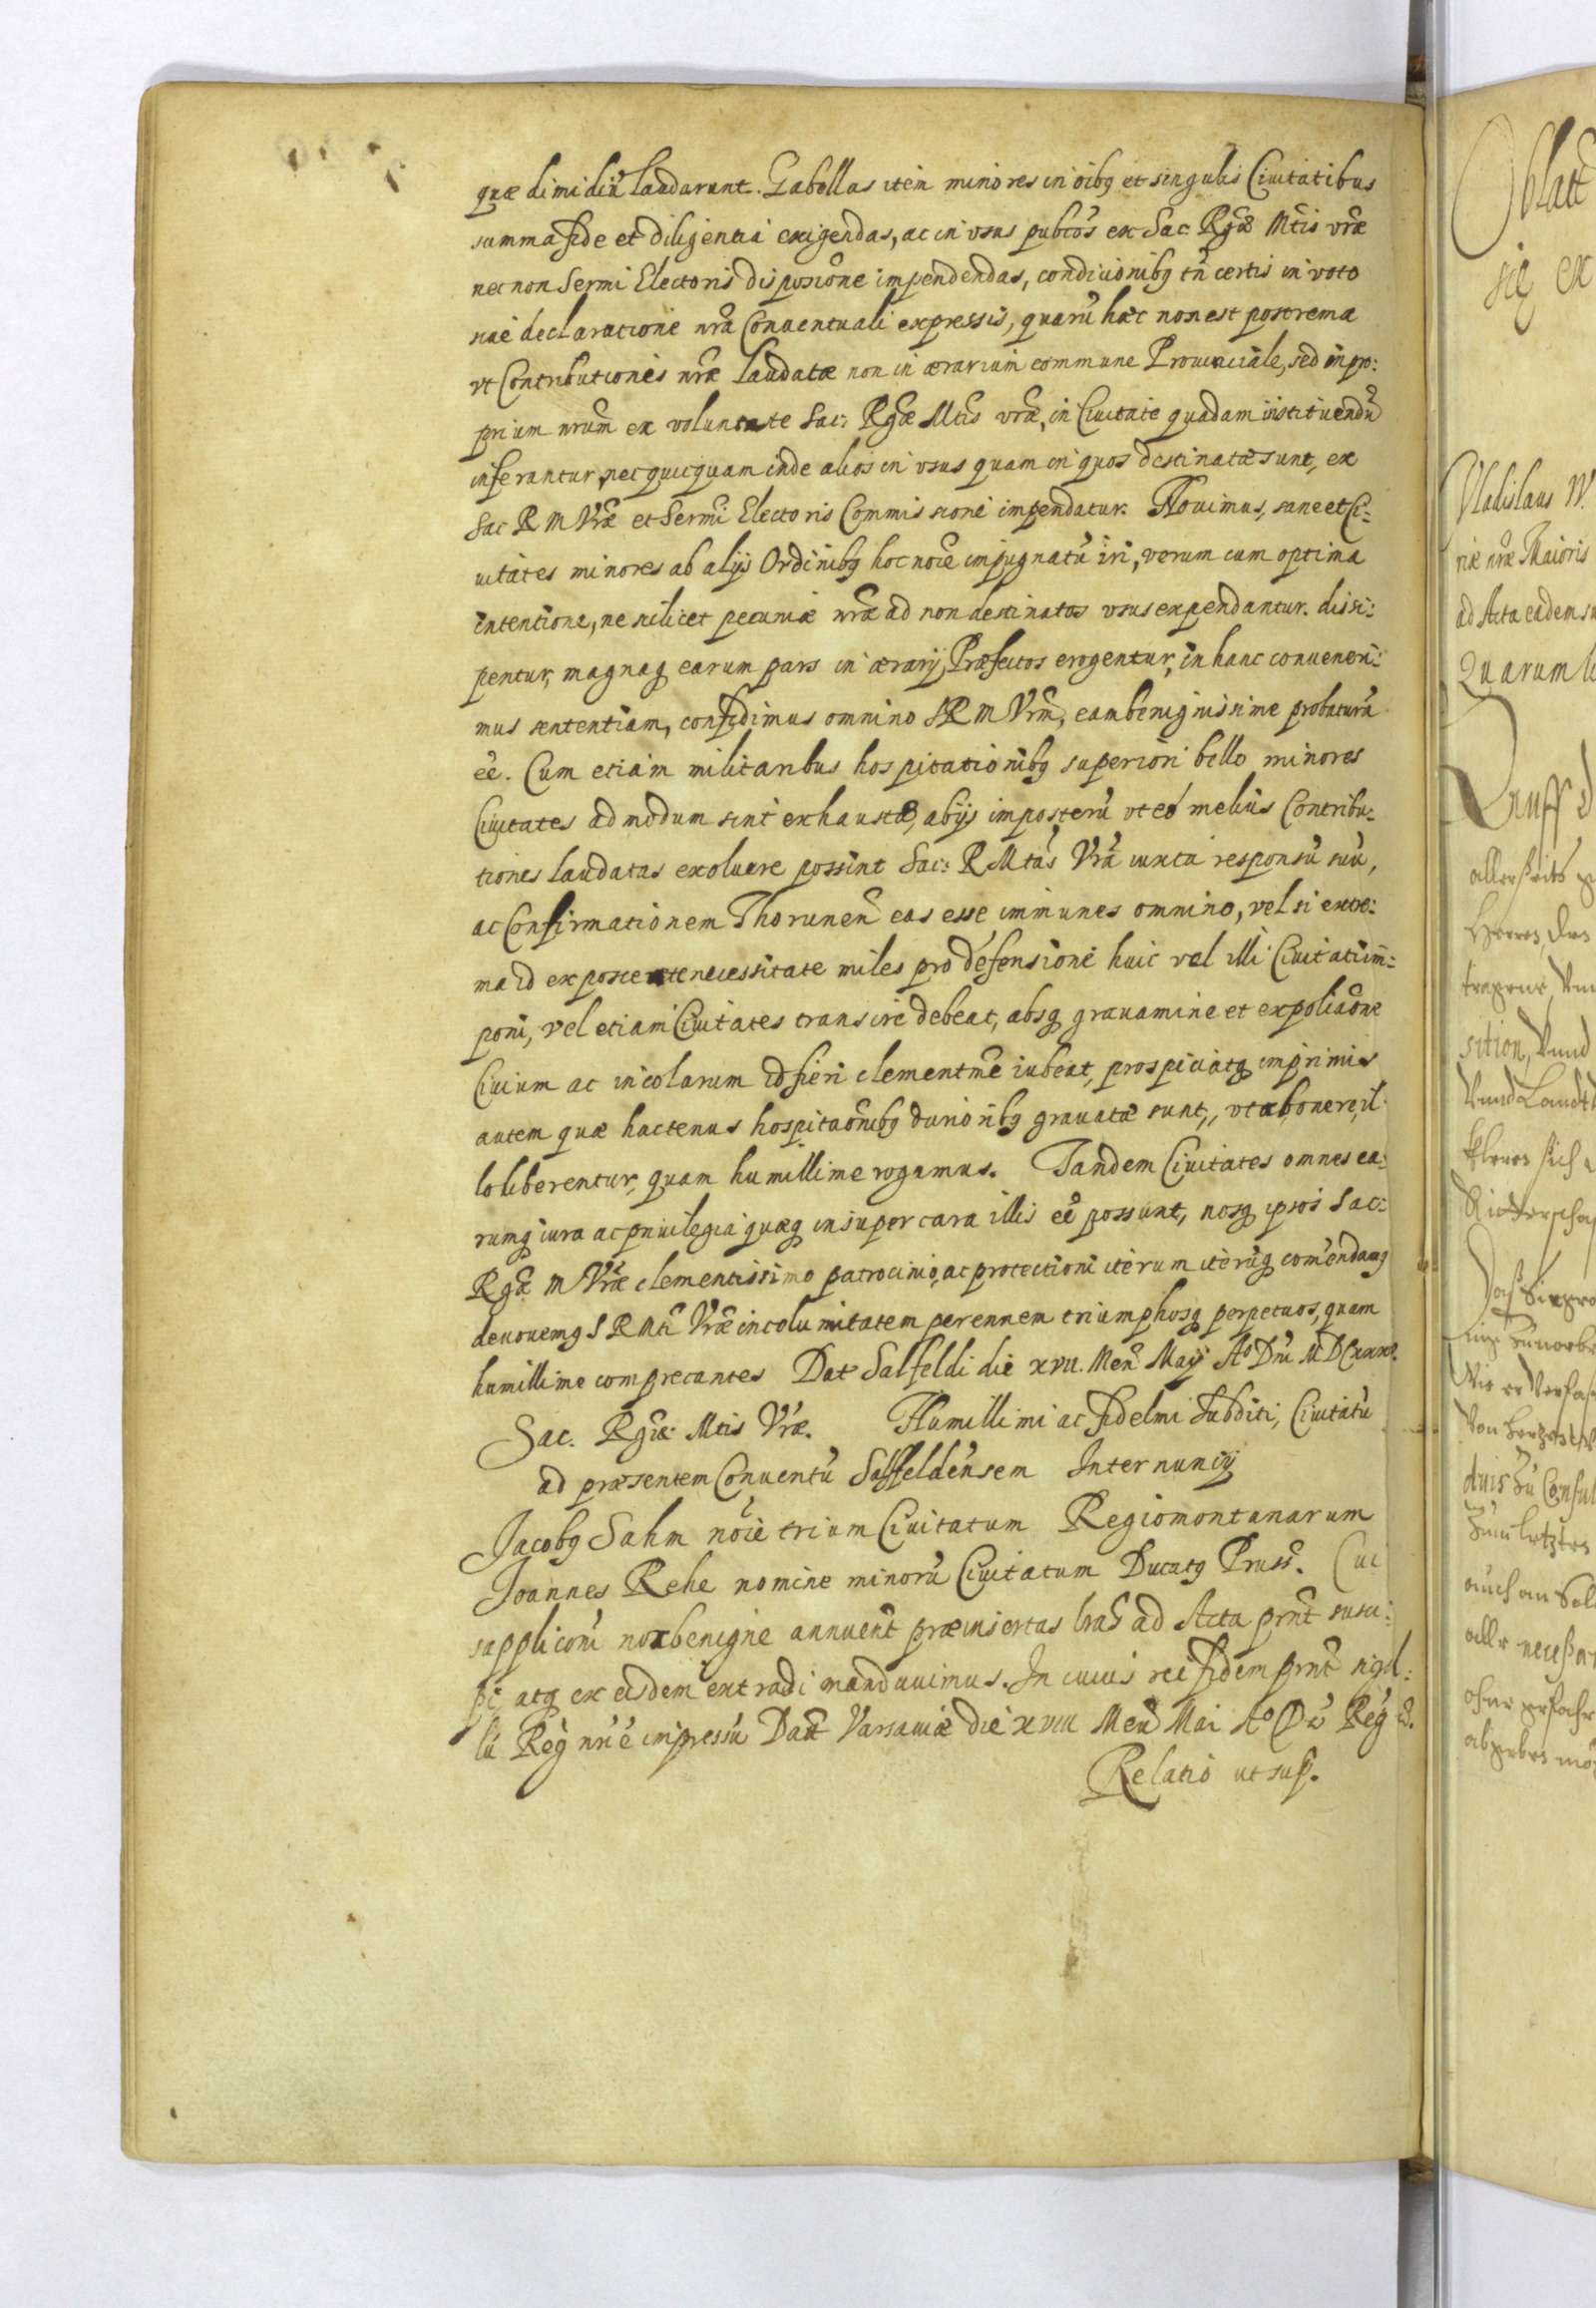 quæ dimidiũ laudarunt. Gabellas itẽm minores in oĩbꝫ et singulis Ciuitatibus
summa fide et diligentia exigendas, ac in vsus publcõs ex Sac Rgæ̃ Mtĩs vræ̃
nec non Sermĩ Electoris disposiõne impendendas, condicionibꝫ tñ certis in voto
siue declaratione nrã Conuentuali expressis, quarũ hæc non est postrema
vt Contributiones nræ̃ laudatæ non in ærarium commune Prouinciale, sed in pro:
prium nrũm ex voluntate Sac: Rgæ̃ Mtĩs vræ̃, in Ciuitate quadam instituendũ
inferantur, nec quicquam inde alios in vsus quam in quos destinatæ sunt, ex
Sac R M Vræ̃ et Sermĩ Electoris Commissione impendatur. Nouimus, sane et Ci:
uitates minores ab alijs Ordinibꝫ hoc noiẽ impugnatũ iri, verum cum optima
intentione, ne scilicet pecuniæ nræ̃ ad non destinatos vsus expendantur. dissi:
pentur, magnaqꝫ earum pars in ærarij Præfectos erogentur, in hanc conueneri:
mus sententiam, confidimus omnino S R M Vrãm, eam benignissime probaturã
eẽ. Cum etiam militaribus hospitationibꝫ superiori bello minores
Ciuitates admodum sint exhaustæ, ab ijs imposterũ vt eó melius Contribu:
tiones laudatas exoluere possint Sac: R Mtãs Vrã iuxta responsũ suũ,
ac Confirmationem Thorunen̄ eas esse immunes omnino, vel si extre:
ma id exposcente necessitate miles pro defensione huic vel illi Ciuitati im:
poni, vel etiam Ciuitates transire debeat, absqꝫ grauamine et expoliaõne
Ciuium ac incolarum id fieri clementmẽ iubeat, prospiciatqꝫ imprimis
autem quæ hactenus hospitaõnibꝫ durioribꝫ grauatæ sunt, vt ab onere il:
lo liberentur, quam humillime rogamus. Tandem Ciuitates omnes ea:
rumqꝫ iura ac priuilegia quæqꝫ insuper cara illis eẽ possunt, nosqꝫ ipsos Sac:
Rgæ̃ M Vræ̃ clementissimo patrocinio, ac protectioni iterum iterũqꝫ comẽndamꝫ
deuouemꝫ S R Mtĩ Vræ̃ incolumitatem perennem triumphosqꝫ perpetuos, quam
humillime comprecantes Dat Salfeldi die xvii. Men̄ Maij Aᵒ Dnĩ MDCxxxᵒ.
Sac. Rgiæ: Mtis Vræ. Humillimi ac fidelmi Subditi, Ciuitatũ
ad præsentem Conuentũ Salfeldensem Internuncij
Jacobꝫ Sahm noiẽ trium Ciuitatum Regiomontanarum
Joannes Rehe nomine minorũ Ciuitatum Ducatꝫ Pruss̄. Cui
supplicõni nos benigne annuen̄t præinsertas lrãs ad Acta prn̄t susci:
pi atqꝫ ex eisdem extradi mandauimus. In cuius rei fidem prn̄t sigil:
lũ Reg̃ nrẽ impressũ Dat̃ Varsauiæ die xviii Men̄ Mai Aᵒ Reg
Relatio ut sup.
Oblatĩ
Vladislaus IV.
riæ nræ̃ Maioris
ad Acta eadem
Quarum
Auff
sition, Vnnd
Vnnd Landt